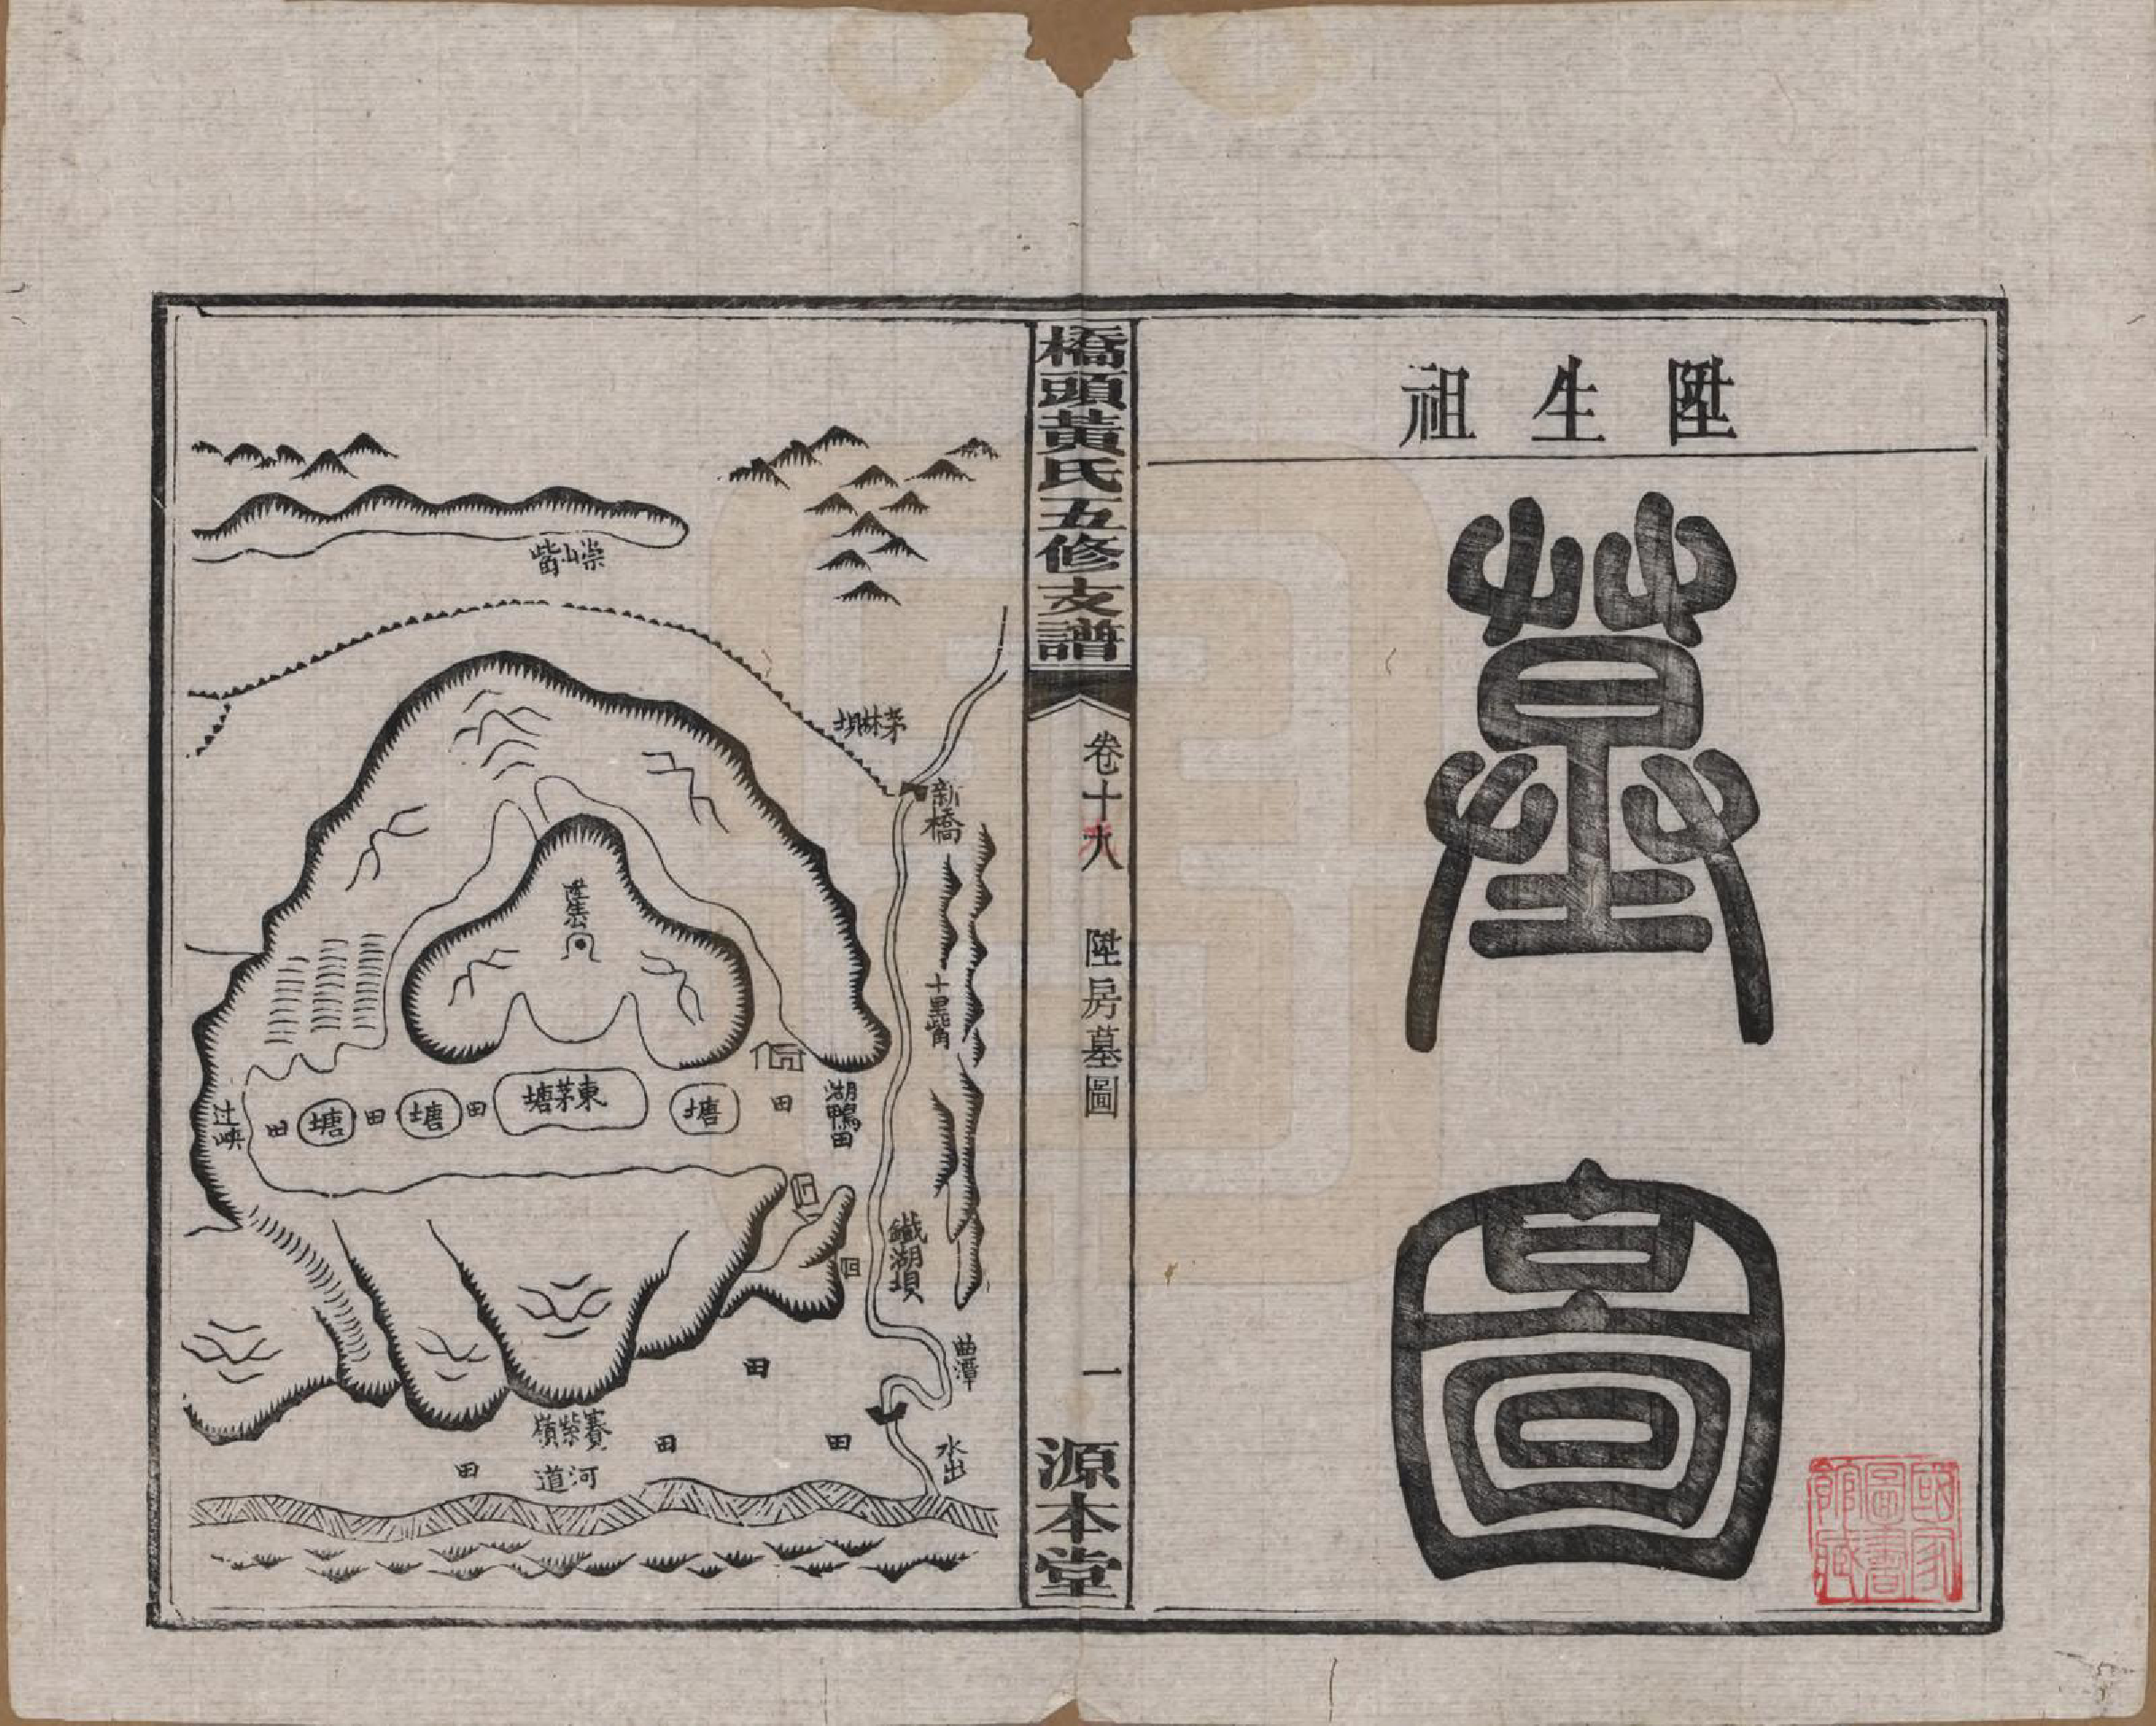 陞生祖
墓圖
國家圖書館藏
橋頭黃氏五修支譜
卷十八
陞房墓圖
一
源本堂
崇山嘴
茅林坝
新橋
陞生公
十里嘴
湖鴨田
田
塘
東茅塘
田
塘
田
塘
田
过峽
鐵湖垻
曲潭
水出
田
田
田
田
賽紫嶺
河道